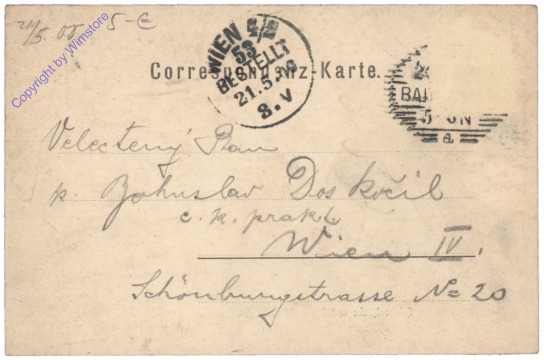 21/5. 00 5-E
Copyright by Wimstore
WIEN 4/2
53
BESTELLT
21.5.00
8.V
Correspondenz-Karte.
BAD
5 ON
a
Velectený Pan
p. Bohuslav Doskočil
c. k. prakt.
Wien IV.
Schönburgstrasse N= 20